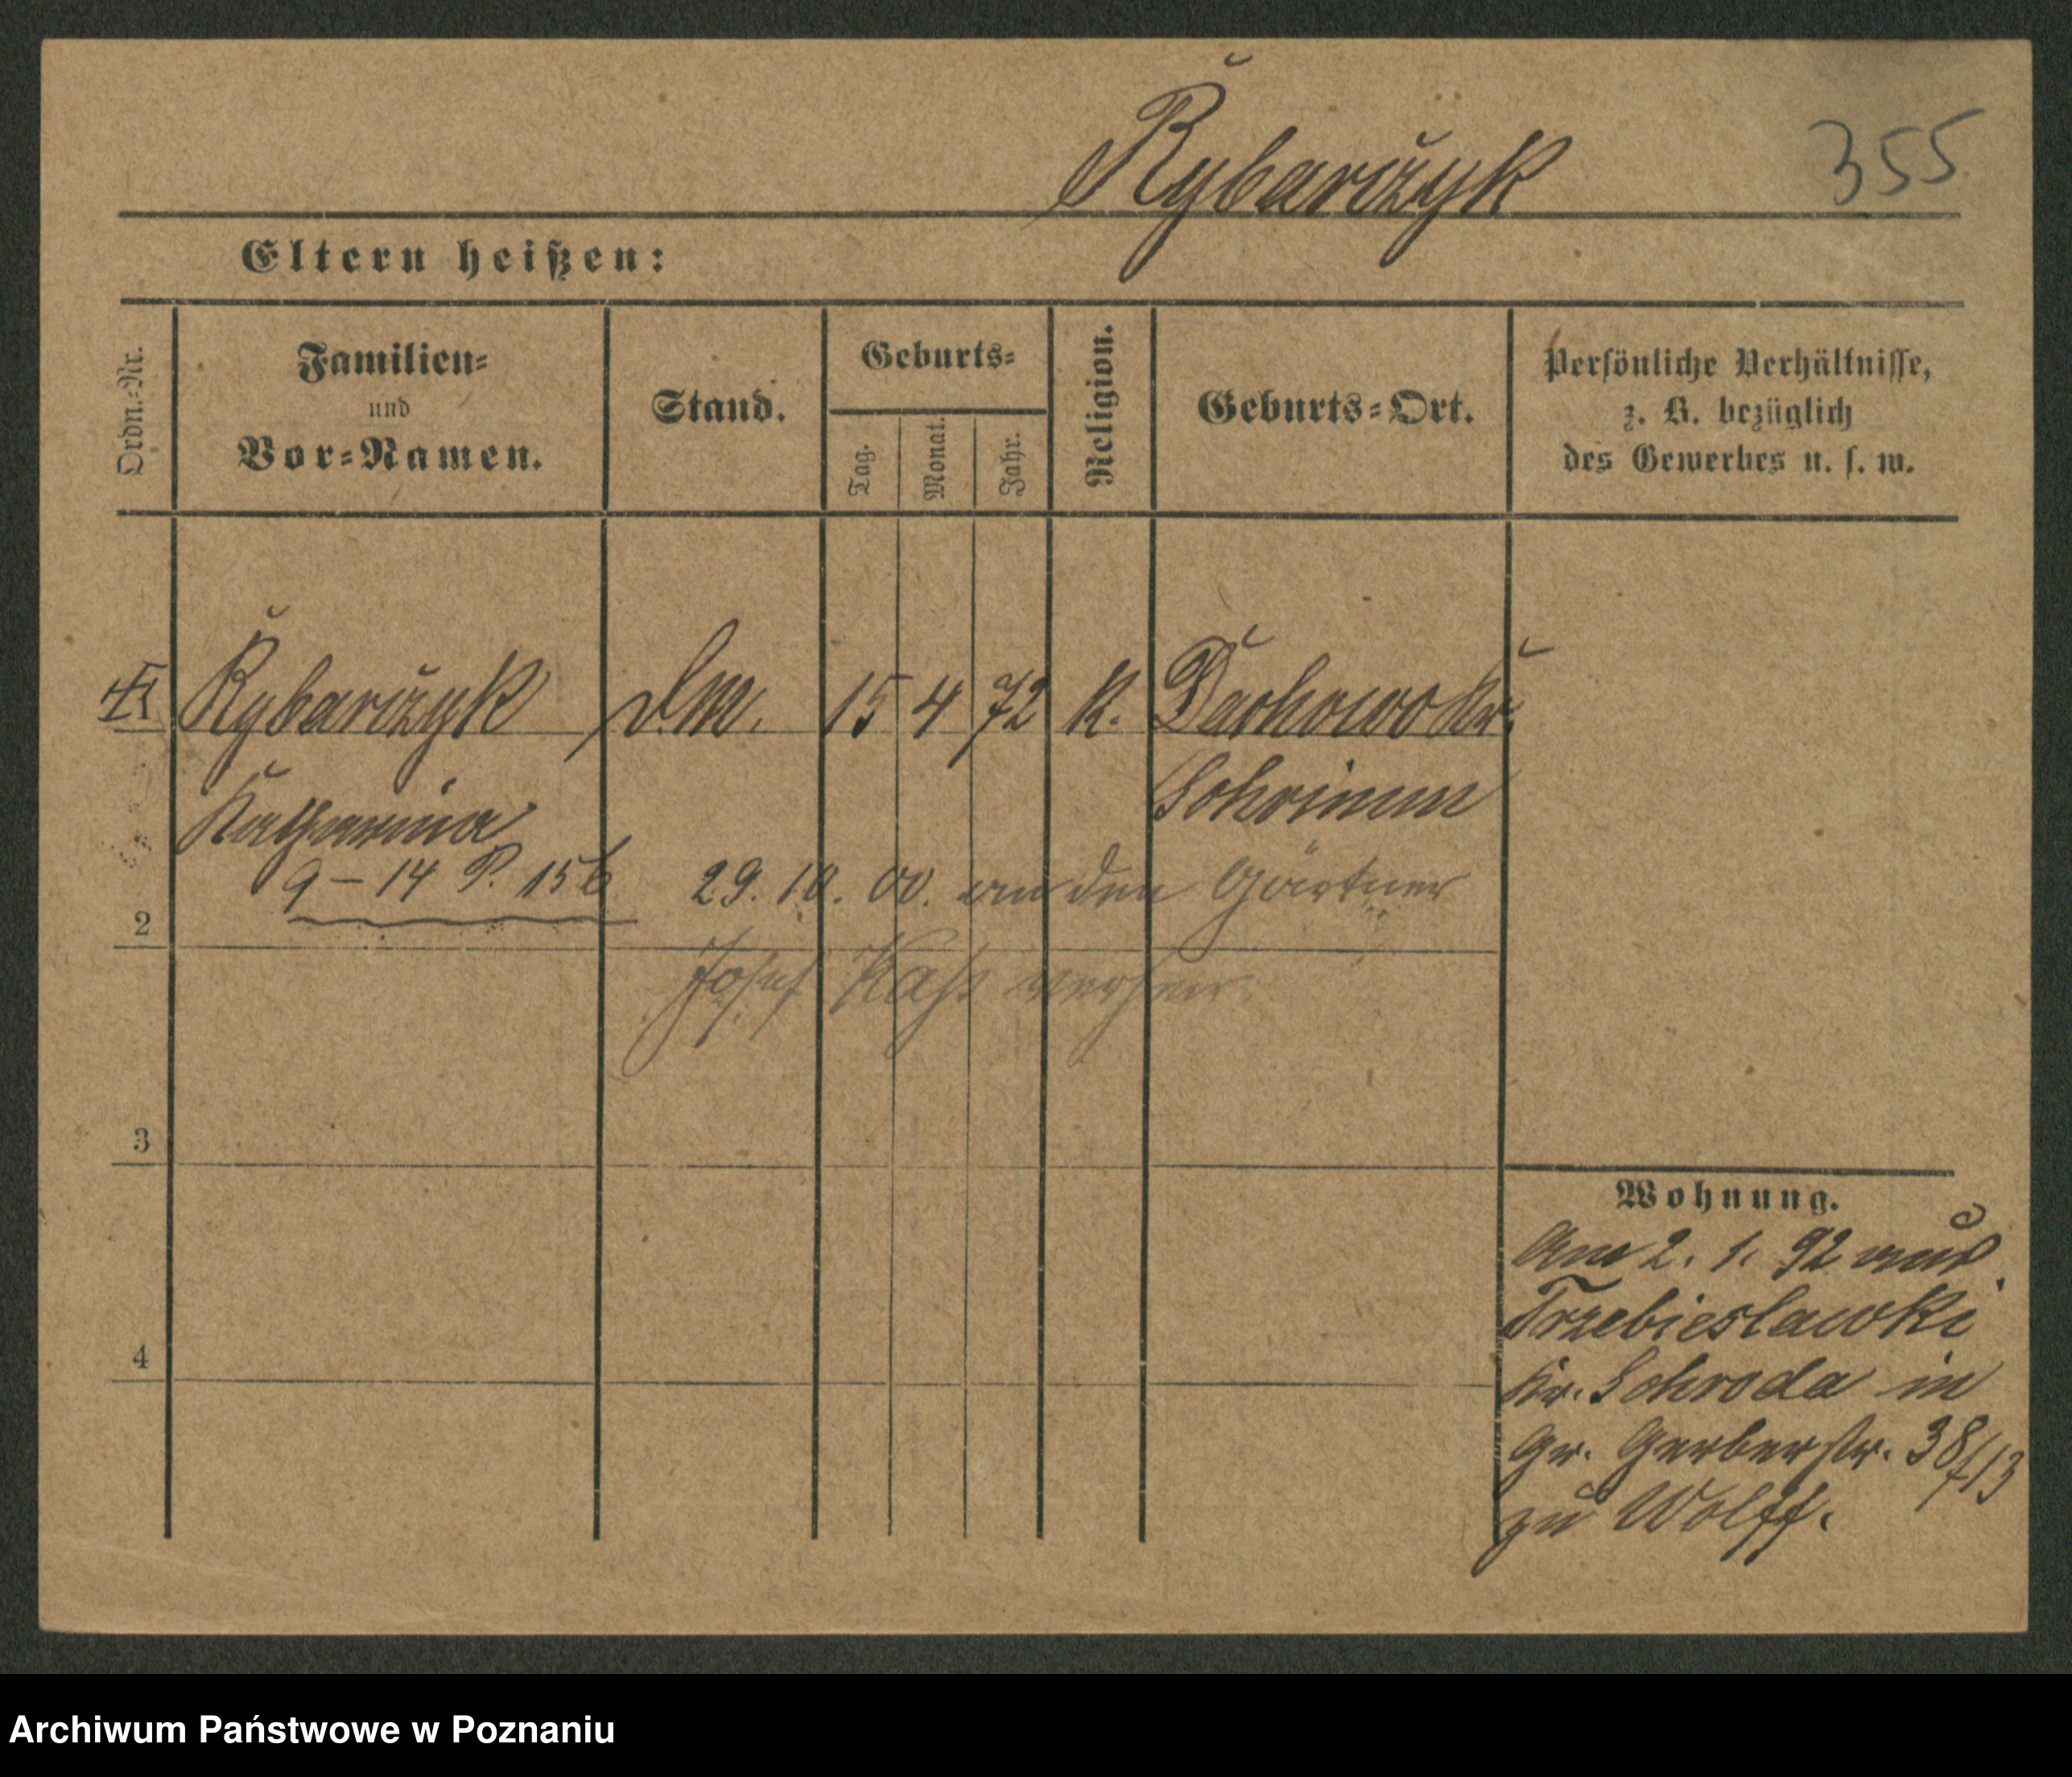 Rybarczyk
355
Eltern heißen:
Ordn.-Nr.
Familien-
und
Vor-Namen.
Stand.
Geburts-
Tag.
Monat.
Jahr.
Religion.
Geburts-Ort.
Persönliche Verhältnisse,
z. B. bezüglich
des Gewerbes u. s. w.
Rybarczyk 15 4 72 K. Dachowo Kr.
Katharina Schrimm
9-14 P. 156 29. 10. 00. an den Gärtner
2
Josef Kass verheir.
3
4
Wohnung.
Am 2. 1. 92 aus
Trzebieslawki
Kr. Schroda in
Gr. Gerberstr. 38/13
zu Wolff.
Archiwum Państwowe w Poznaniu